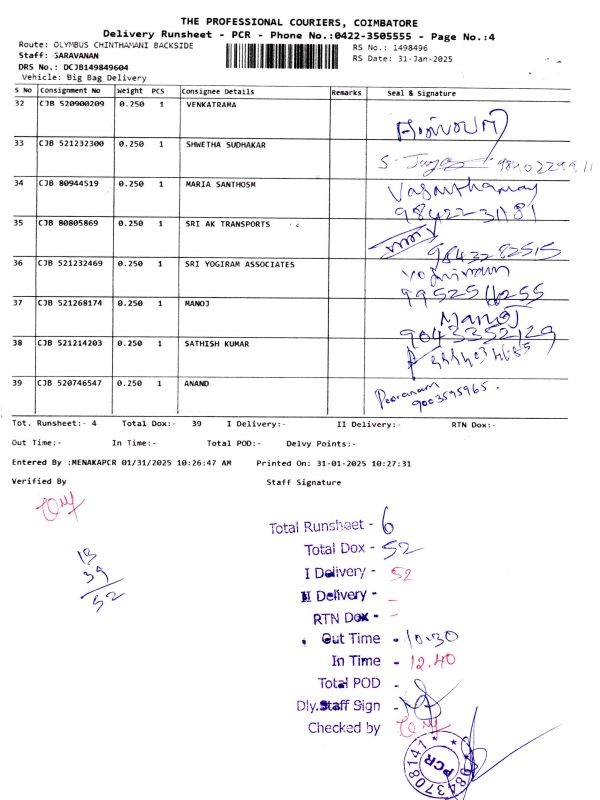 THE PROFESSIONAL COURIERS, COIMBATORE
Delivery Runsheet - PCR - Phone No.:0422-3505555 - Page No.:4
Route: OLYMBUS CHINTHAMANI BACKSIDE
RS No.: 1498496
Staff: SARAVANAN
RS Date: 31-Jan-2025
DRS No.: DCJB149849604
Vehicle: Big Bag Delivery
S No Consignment No Weight PCS Consignee Details Remarks Seal & Signature
32 CJB 520900209 0.250 1 VENKATRAMA
33 CJB 521232300 0.250 1 SHWETHA SUDHAKAR
S.
34 CJB 80944519 0.250 1 MARIA SANTHOSM
98422-31181
35 CJB 80805869 0.250 1 SRI AK TRANSPORTS
9843282515
36 CJB 521232469 0.250 1 SRI YOGIRAM ASSOCIATES
37 CJB 521268174 0.250 1 MANOJ
Manoj
9043352129
38 CJB 521214203 0.250 1 SATHISH KUMAR
39 CJB 520746547 0.250 1 ANAND
9003595965.
Tot. Runsheet:- 4 Total Dox:- 39 I Delivery:- II Delivery:- RTN Dox:-
Out Time:- In Time:- Total POD:- Delvy Points:-
Entered By :MENAKAPCR 01/31/2025 10:26:47 AM Printed On: 31-01-2025 10:27:31
Verified By Staff Signature
13
39
52
Total Runshaet - 6
Total Dox - 52
I Delivery - 52
II Delivery - -
RTN Dox - -
Out Time - 10.30
In Time - 12.40
Total POD -
Dly.Staff Sign -
Checked by
PCR
9843708141